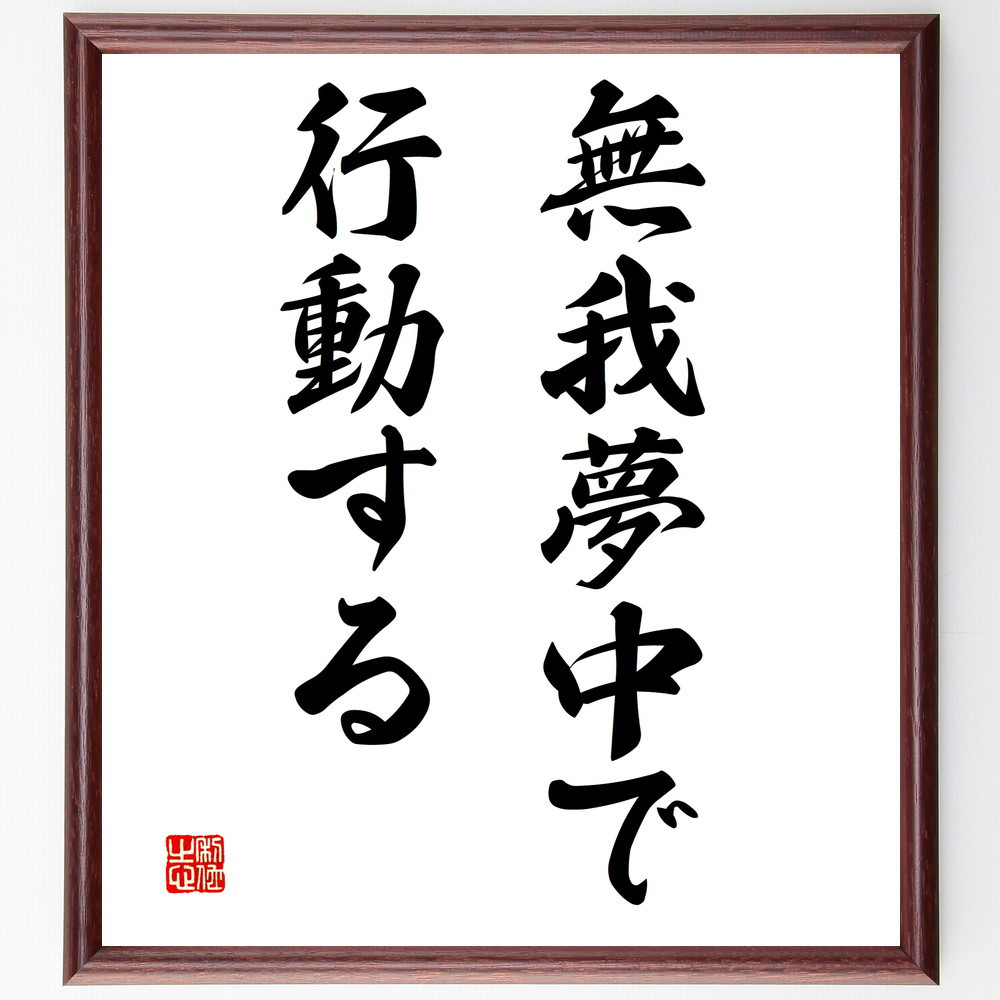 無我夢中で
行動する